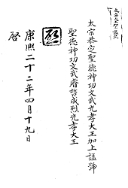 太宗恭定聖德神功文武光孝大王加上諡號
聖德神功文武睿哲成烈光孝大王
啓
康熙二十二年四月十九日
啓